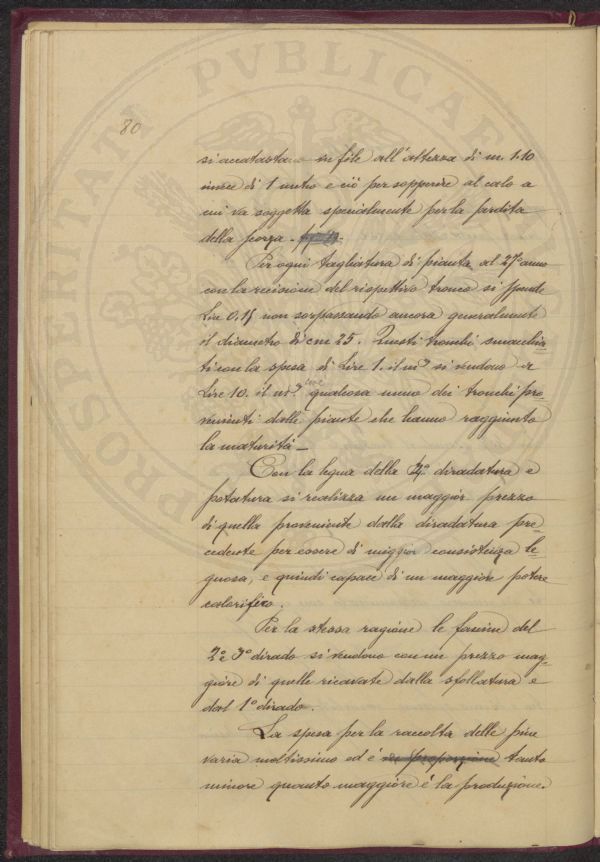 80
si accatastano in file all'altezza di m. 1.10
invece di 1 metro e ciò per sopperire al calo a
cui va soggetta specialmente per la perdita
della forza -
Per ogni tagliatura di pianta al 27° anno
con la recisione del rispettivo tronco si spende
Lire 0,15 non sorpassando ancora generalmente
il diametro di cm 25. Questi tronchi smacchia-
ti con la spesa di Lire 1. il m³ si vendono a
Lire 10. il m³ cioè qualcosa meno dei tronchi pro-
venienti dalle piante che hanno raggiunto
la maturità -
Con la legna della 2ª diradatura e
potatura si realizza un maggior prezzo
di quella proveniente dalla diradatura pre-
cedente per essere di miglior consistenza le-
gnosa, e quindi capace di un maggiore potere
calorifero.
Per la stessa ragione le fascine del
2° e 3° dirado si vendono con un prezzo mag-
giore di quelle ricavate dalla sfollatura e
dal 1° dirado.
La spesa per la raccolta delle pine
varia moltissimo ed è in proporzione tanto
minore quanto maggiore è la produzione.
PROSPERITATI PVBLICAE